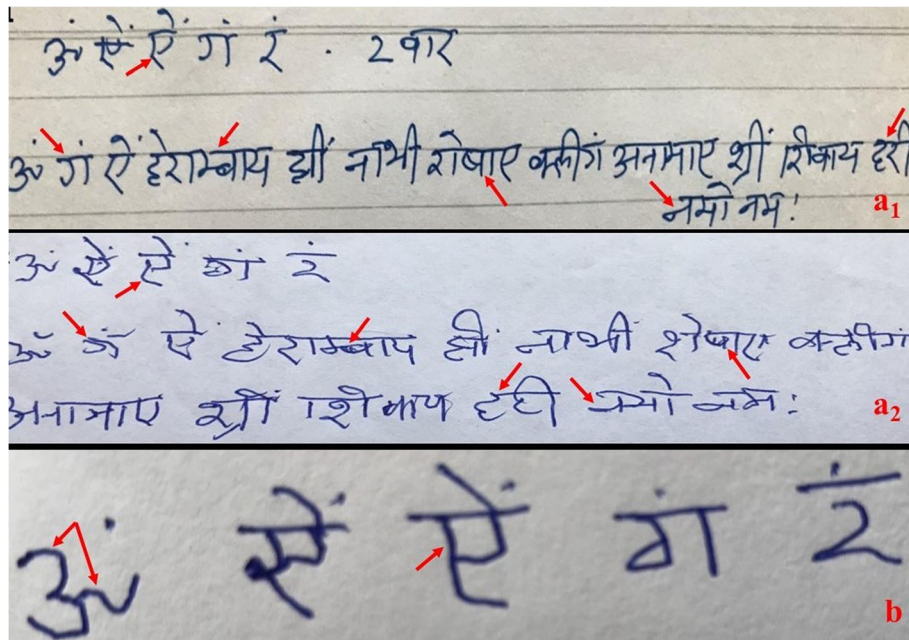 ॐ ऐं ऐं गं रं . 2 वार
ॐ गं ऐं हेराम्बाय ह्रीं नाभी शेषाए क्लींगं अनामाए श्रीं शिवाय हरी
नमो नमः
a₁
ॐ ऐं ऐं गं रं
ॐ गं ऐं हेराम्बाय ह्रीं नाभीं शेषाए क्लींगं
अनामाए श्रीं शिवाय हरी नमो नमः
a₂
ॐ ऐं ऐं गं रं
b